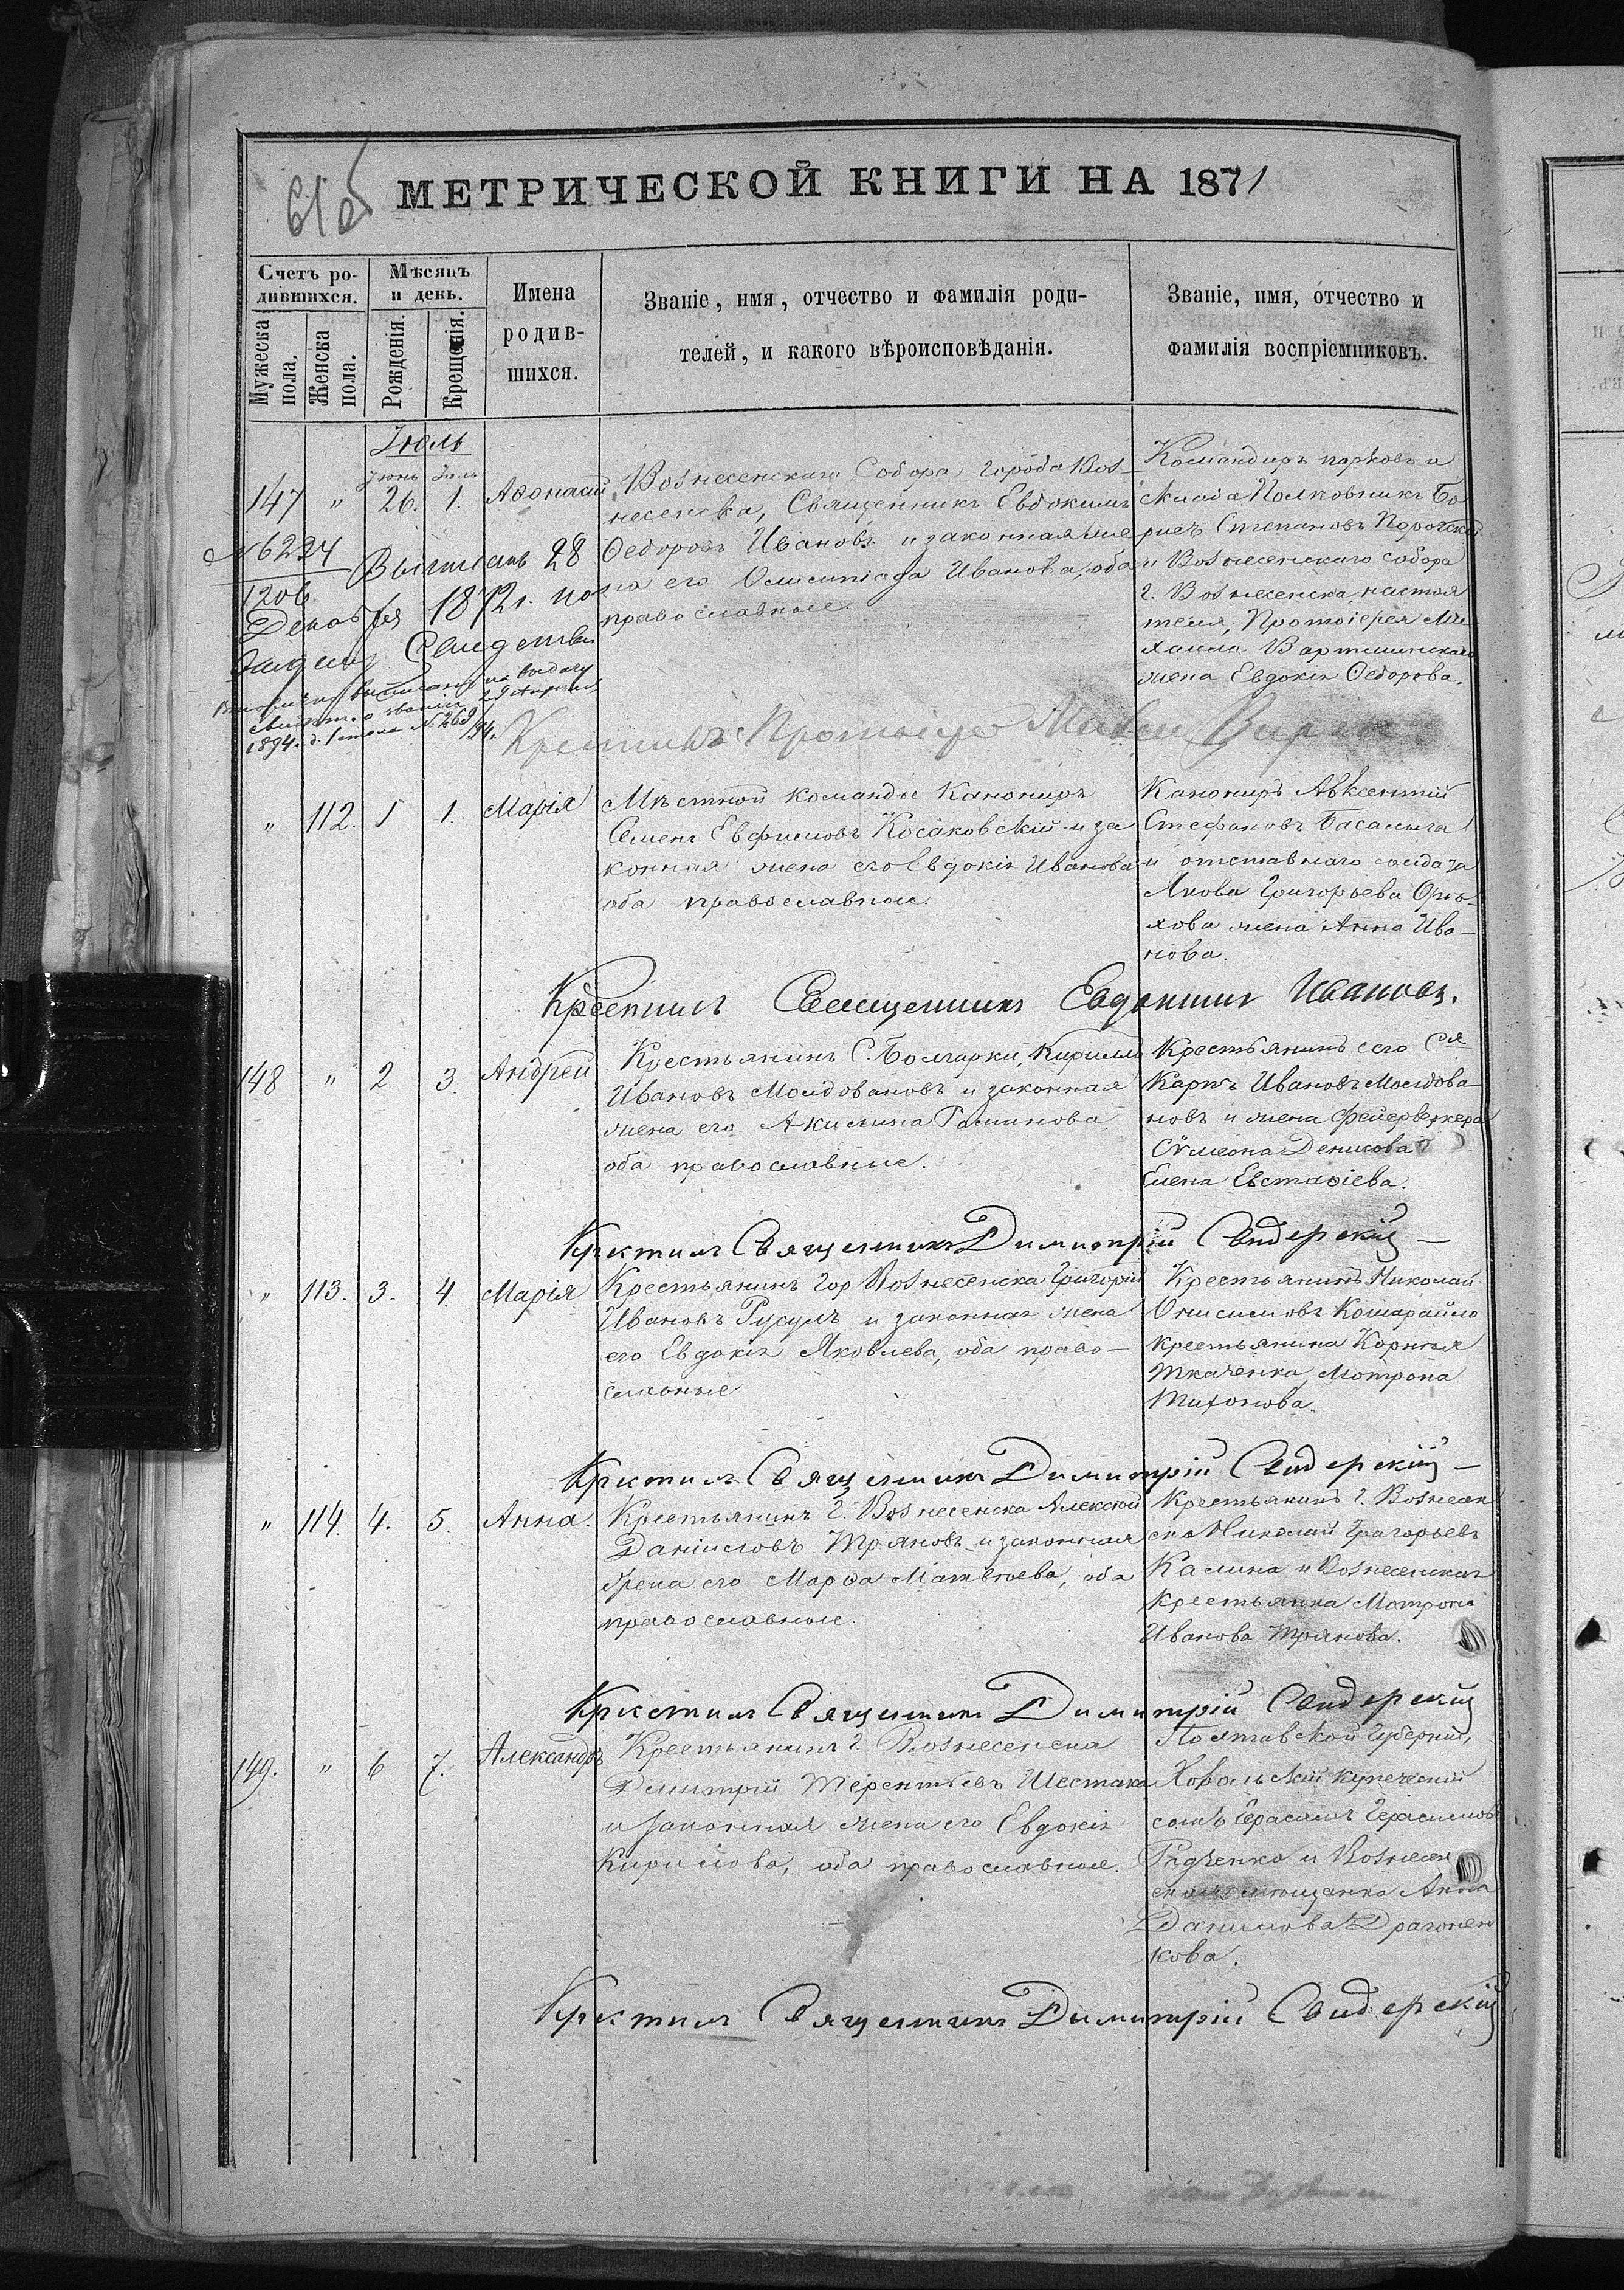 61об
МЕТРИЧЕСКОЙ КНИГИ НА 1871
Счетъ ро-
дившихся.
Мужеска пола.
Женска пола.
Мѣсяцъ
и день.
Рожденія.
Крещенія.
Имена
родив-
шихся.
Званіе, имя, отчество и фамилія роди-
телей, и какого вѣроисповѣданія.
Званіе, имя, отчество и
фамилія воспріемниковъ.
Іюль
Іюнь Іюль
147 " 26. 1. Аѳонасій
Вознесенскаго Собора города Воз-
несенска, Священникъ Евдокимъ
Ѳедоровъ Ивановъ и законная же
на его Олимпіада Иванова, оба
православные
Командиръ парковъ и
Полковникъ Бо
рисъ Степановъ
и Вознесенскаго собора
г. Вознесенска настоя
теля, Протоіерея Ми
хаила
жена Евдокія Ѳедорова.
№ 6224
1206
Выписанъ 28
Декабря 1872 г. по
Свидетел
1894 г. № 269
Крестилъ Протоіерей
" 112. 1 1. Марія
Мѣстной команды Канониръ
Семенъ Евфимовъ Косаковскій и за
конная жена его Евдокія Иванова
оба православные.
Канониръ Авксентій
Стефановъ Басалыга
и отставнаго солдата
Якова Григорьева Орѣ-
хова жена Анна Ива-
нова.
Крестилъ Священникъ Евдокимъ Ивановъ.
148 " 2 3. Андрей
Крестьянинъ С. Болгарки, Кириллъ
Ивановъ Молдовановъ и законная
жена его Акилина Романова
оба православные.
Крестьянинъ сего С-я
Карпъ Ивановъ Молдова
новъ и жена фейерверкера
Сѵмеона Денисова
Елена Евстаѳіева.
Крстилъ Священникъ Димитрій Свидерскій —
" 113. 3. 4. Марія
Крестьянинъ гор Вознесенска Григорій
Ивановъ Русулъ и законная жена
его Евдокія Яковлева, оба право-
славные
Крестьянинъ Николай
Онисимовъ Кошарайло
крестьянина Корнея
Ткаченка, Мотрона
Тихонова.
Крстилъ Священникъ Димитрій Свидерскій —
" 114. 4. 5. Анна.
Крестьянинъ г. Вознесенска Алексѣй
Даніиловъ Трановъ и законная
жена его Марѳа Матвѣева, оба
православные.
Крестьянинъ г. Вознесен
ска Николай Григорьевъ
Калина и Вознесенская
крестьянка Мотрона
Иванова Транова.
Крстилъ Священникъ Димитрій Свидерскій
149. " 6 7. Александръ
Крестьянинъ г. Вознесенска
Димитрій Терентьевъ Шестака
и законная жена его Евдокія
Кирилова, оба православные.
Полтавской Губерніи,
Хорольскій купеческій
сынъ Герасимъ Герасимовъ
Радченко и Вознесен
ская мѣщанка Анна
Данилова Драгонен
кова.
Крстилъ Священникъ Димитрій Свидерскій